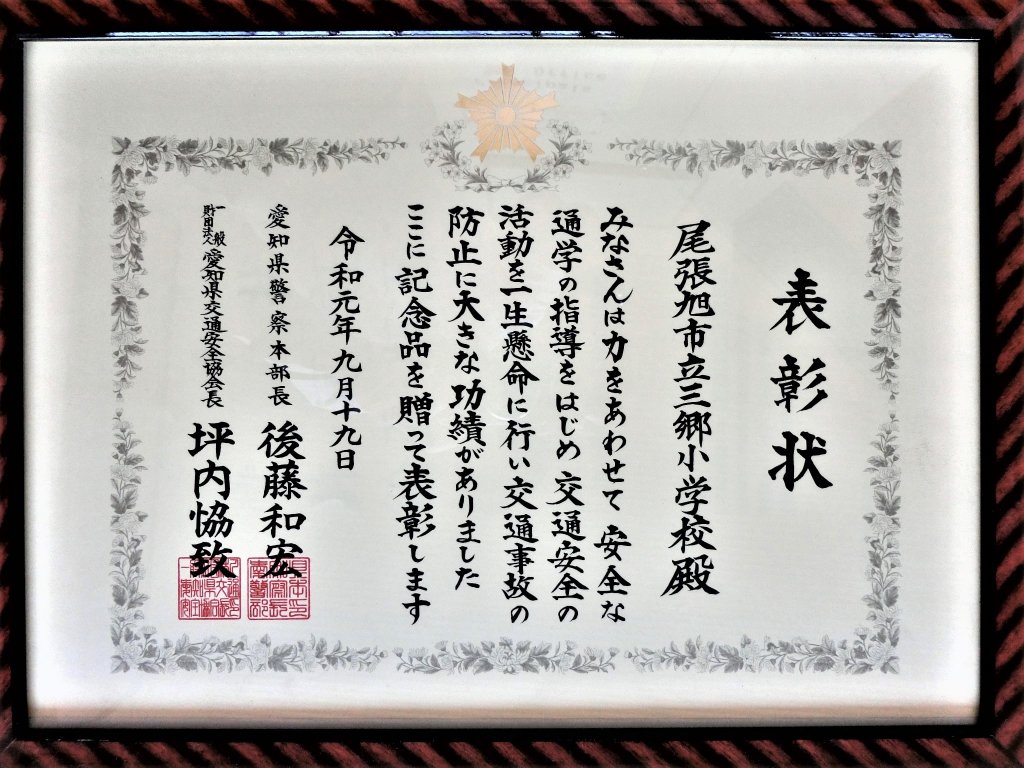 表彰状
尾張旭市立三郷小学校殿
みなさんは力をあわせて 安全な
通学の指導をはじめ 交通安全の
活動を一生懸命に行い交通事故の
防止に大きな功績がありました
ここに記念品を贈って表彰します
令和元年九月十九日
愛知県警察本部長 後藤和宏
一般財団法人 愛知県交通安全協会長 坪内恊致